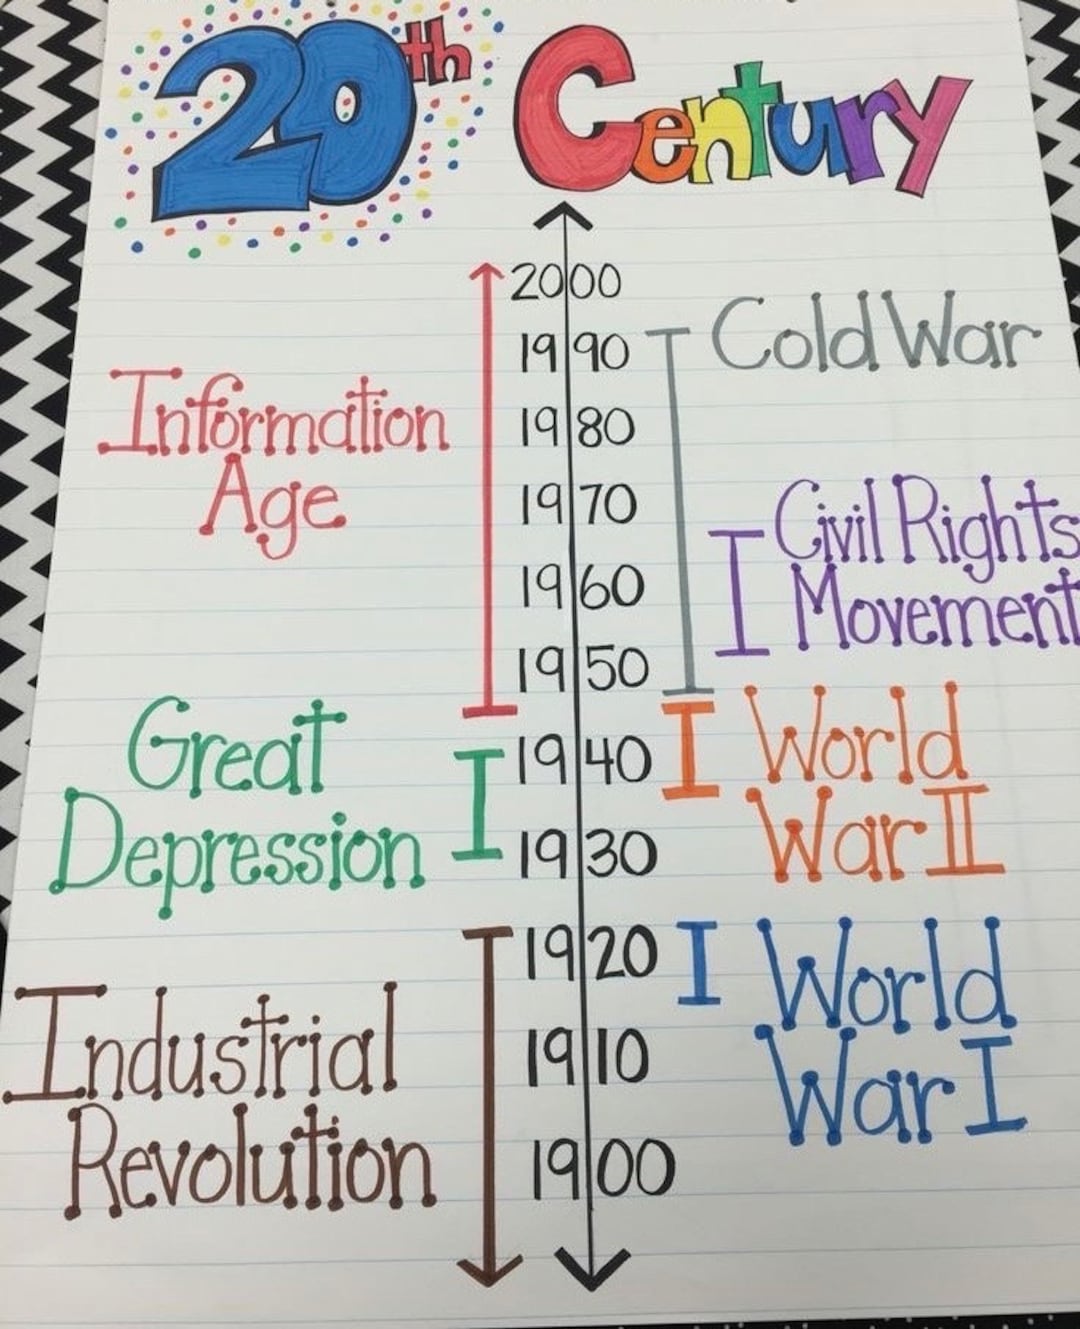 20th Century
2000
1990
1980
1970
1960
1950
1940
1930
1920
1910
1900
Information
Age
Great
Depression
Industrial
Revolution
Cold War
Civil Rights
Movement
World
War II
World
War I